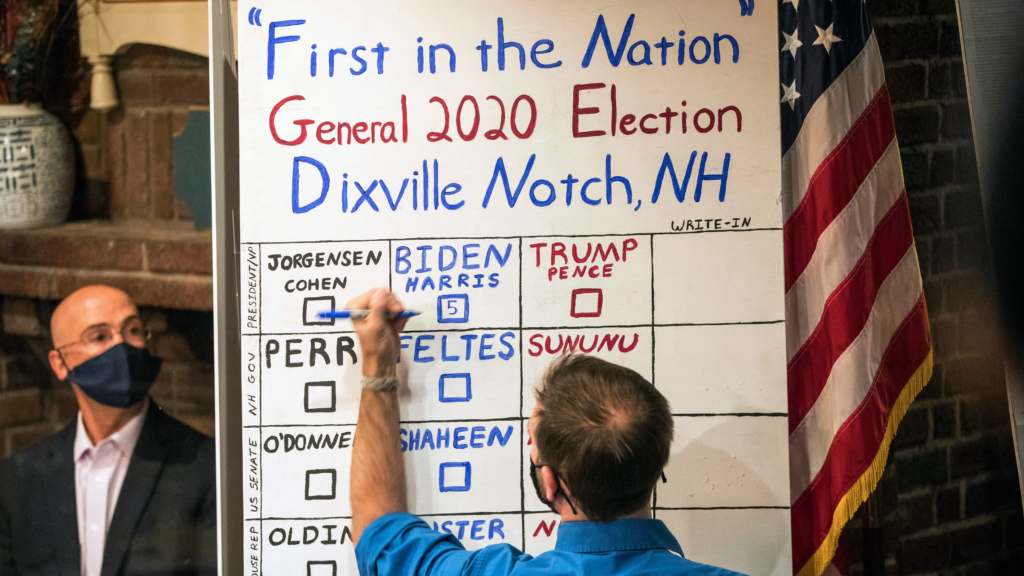 "First in the Nation"
General 2020 Election
Dixville Notch, NH
WRITE-IN
PRESIDENT/VP
JORGENSEN
COHEN
BIDEN
HARRIS
5
TRUMP
PENCE
NH GOV.
PERR
FELTES
SUNUNU
US SENATE
O'DONNE
SHAHEEN
OUSE REP
OLDIN
STER
N